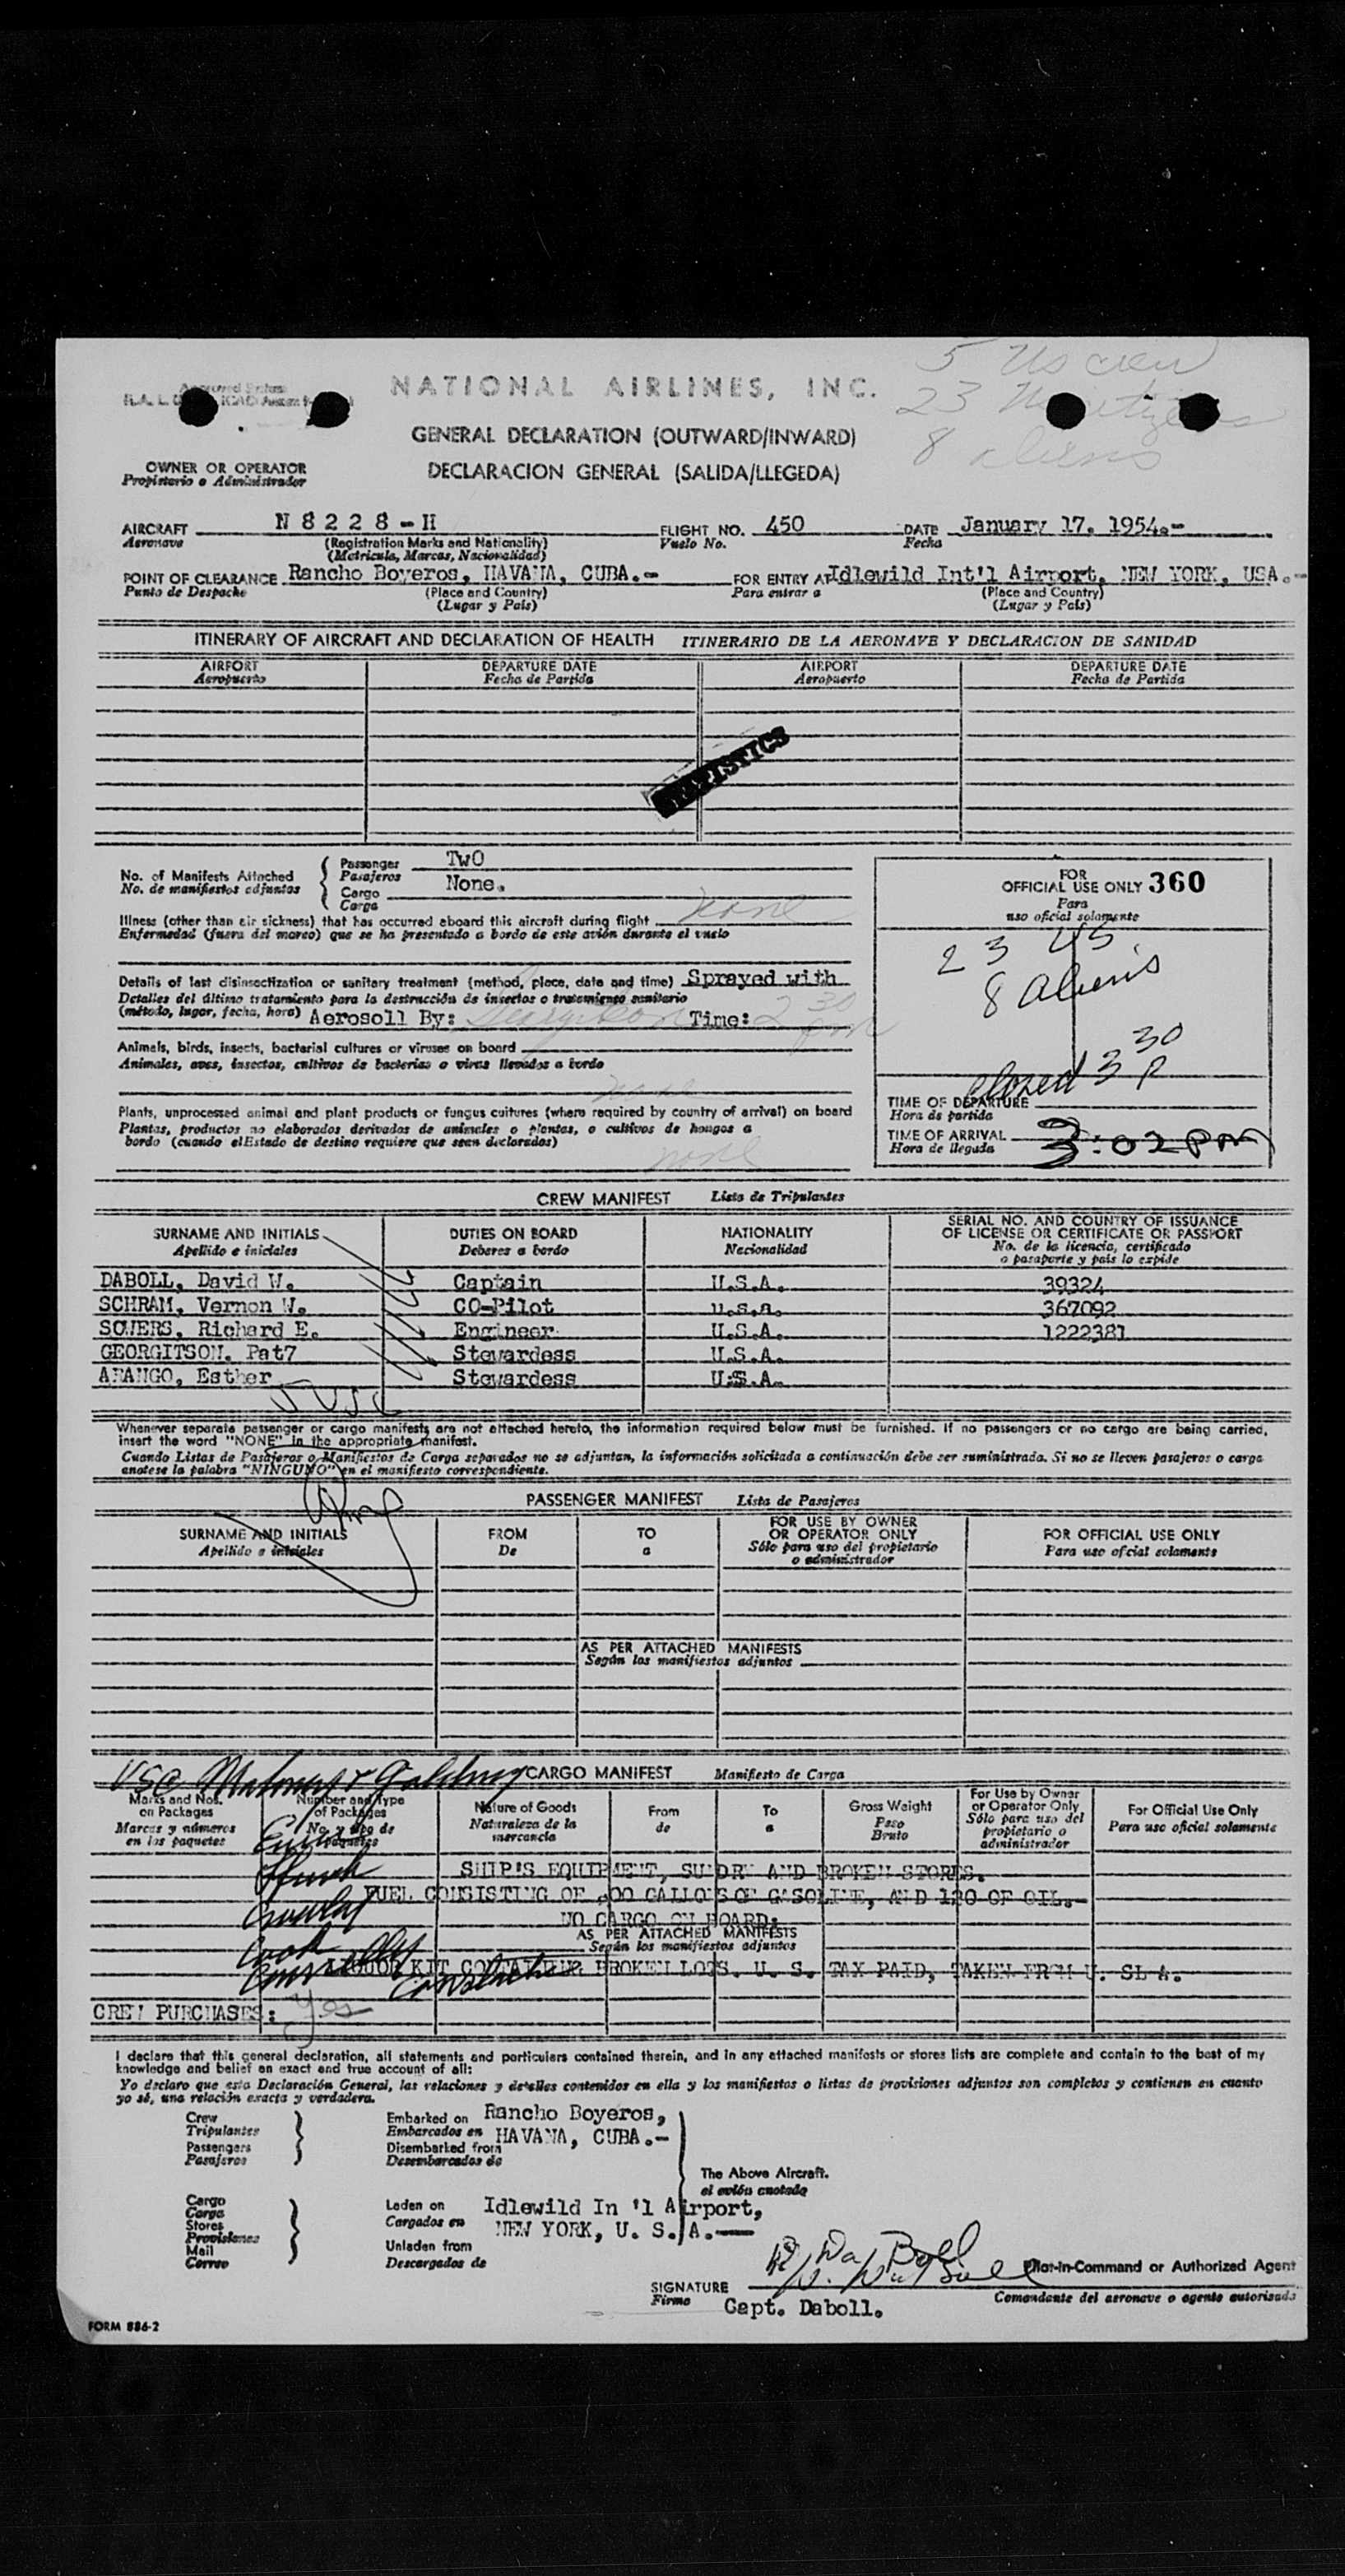 5 US crew
NATIONAL AIRLINES, INC.
23
8 aliens
GENERAL DECLARATION (OUTWARD/INWARD)
DECLARACION GENERAL (SALIDA/LLEGEDA)
OWNER OR OPERATOR
Propietario o Administrador
AIRCRAFT N 8 2 2 8 - H FLIGHT NO. 450 DATE January 17, 1954.-
Aeronave (Registration Marks and Nationality) Vuelo No. Fecha
(Matricula, Marcas, Nacionalidad)
POINT OF CLEARANCE Rancho Boyeros, HAVANA, CUBA.- FOR ENTRY AT Idlewild Int'l Airport, NEW YORK, USA.-
Punto de Despacho (Place and Country) Para entrar a (Place and Country)
(Lugar y Pais) (Lugar y Pais)
ITINERARY OF AIRCRAFT AND DECLARATION OF HEALTH ITINERARIO DE LA AERONAVE Y DECLARACION DE SANIDAD
AIRPORT DEPARTURE DATE AIRPORT DEPARTURE DATE
Aeropuerto Fecha de Partida Aeropuerto Fecha de Partida
STATISTICS
No. of Manifests Attached Passenger TwO
No. de manifiestos adjuntos Pasajeros
Cargo None.
Carga
FOR
OFFICIAL USE ONLY 360
Para
uso oficial solamente
Illness (other than air sickness) that has occurred aboard this aircraft during flight none
Enfermedad (fuera del mareo) que se ha presentado a bordo de este avión durante el vuelo
23 US
8 aliens
Details of last disinsectization or sanitary treatment (method, place, date and time) Sprayed with
Detalles del último tratamiento para la destrucción de insectos o tratamiento sanitario
(método, lugar, fecha, hora) Aerosoll By: Time: 2 30 pm
Animals, birds, insects, bacterial cultures or viruses on board
Animales, aves, insectos, cultivos de bacterias o virus llevados a bordo
none
closed 3 30 P
Plants, unprocessed animal and plant products or fungus cultures (where required by country of arrival) on board
Plantas, productos no elaborados derivados de animales o plantas, o cultivos de hongos a
bordo (cuando elEstado de destino requiere que sean declarados)
none
TIME OF DEPARTURE
Hora de partida
TIME OF ARRIVAL 3:02 PM
Hora de llegada
CREW MANIFEST Lista de Tripulantes
SURNAME AND INITIALS DUTIES ON BOARD NATIONALITY SERIAL NO. AND COUNTRY OF ISSUANCE
Apellido e iniciales Deberes a bordo Nacionalidad OF LICENSE OR CERTIFICATE OR PASSPORT
No. de la licencia, certificado
o pasaporte y pais lo expide
DABOLL, David W. Captain U.S.A. 39324
SCHRAM, Vernon W. CO-Pilot u.s.a. 367092
SOWERS, Richard E. Engineer U.S.A. 1222381
GEORGITSON. Pat7 Stewardess U.S.A.
ARANGO, Esther Stewardess U.S.A.
5 USC
Whenever separate passenger or cargo manifests are not attached hereto, the information required below must be furnished. If no passengers or no cargo are being carried,
insert the word "NONE" in the appropriate manifest.
Cuando Listas de Pasajeros o Manifiestos de Carga separados no se adjuntan, la información solicitada a continuación debe ser suministrada. Si no se lleven pasajeros o carga
anotese la palabra "NINGUNO" en el manifiesto correspondiente.
PASSENGER MANIFEST Lista de Pasajeros
SURNAME AND INITIALS FROM TO FOR USE BY OWNER FOR OFFICIAL USE ONLY
Apellido e iniciales De a OR OPERATOR ONLY Para uso ofcial solamente
Sólo para uso del propietario
o administrador
AS PER ATTACHED MANIFESTS
Según los manifiestos adjuntos
CARGO MANIFEST Manifiesto de Carga
Marks and Nos. Number and Type Nature of Goods From To Gross Weight For Use by Owner For Official Use Only
on Packages of Packages Naturaleza de la de a Peso or Operator Only Para uso oficial solamente
Marcas y números No. y tipo de mercancia Bruto Sólo para uso del
en los paquetes paquetes propietario o
administrador
SHIP'S EQUIPMENT, SUNDRY AND BROKEN STORES.
FUEL CONSISTING OF GALLONS OF GASOLINE, AND 120 OF OIL.-
NO CARGO ON BOARD.
AS PER ATTACHED MANIFESTS
Según los manifiestos adjuntos
LIQUOR KIT BROKEN LOTS. U. S. TAX PAID, TAKEN FROM U. SL A.
CREW PURCHASES: yes
I declare that this general declaration, all statements and particulars contained therein, and in any attached manifests or stores lists are complete and contain to the best of my
knowledge and belief an exact and true account of all:
Yo declaro que esta Declaración General, las relaciones y detalles contenidos en ella y los manifiestos o listas de provisiones adjuntos son completos y contienen en cuanto
yo sé, una relación exacta y verdadera.
Crew Embarked on Rancho Boyeros,
Tripulantes Embarcados en HAVANA, CUBA.-
Passengers Disembarked from
Pasajeros Desembarcados de
The Above Aircraft.
el avión anotado
Cargo Laden on Idlewild In 'l Airport,
Carga Cargados en NEW YORK, U. S. A.-
Stores
Provisiones Unladen from
Mail Descargados de
Correo
Pilot-in-Command or Authorized Agent
SIGNATURE
Firma Capt. Daboll. Comandante del aeronave o agente autorizado
FORM 886-2